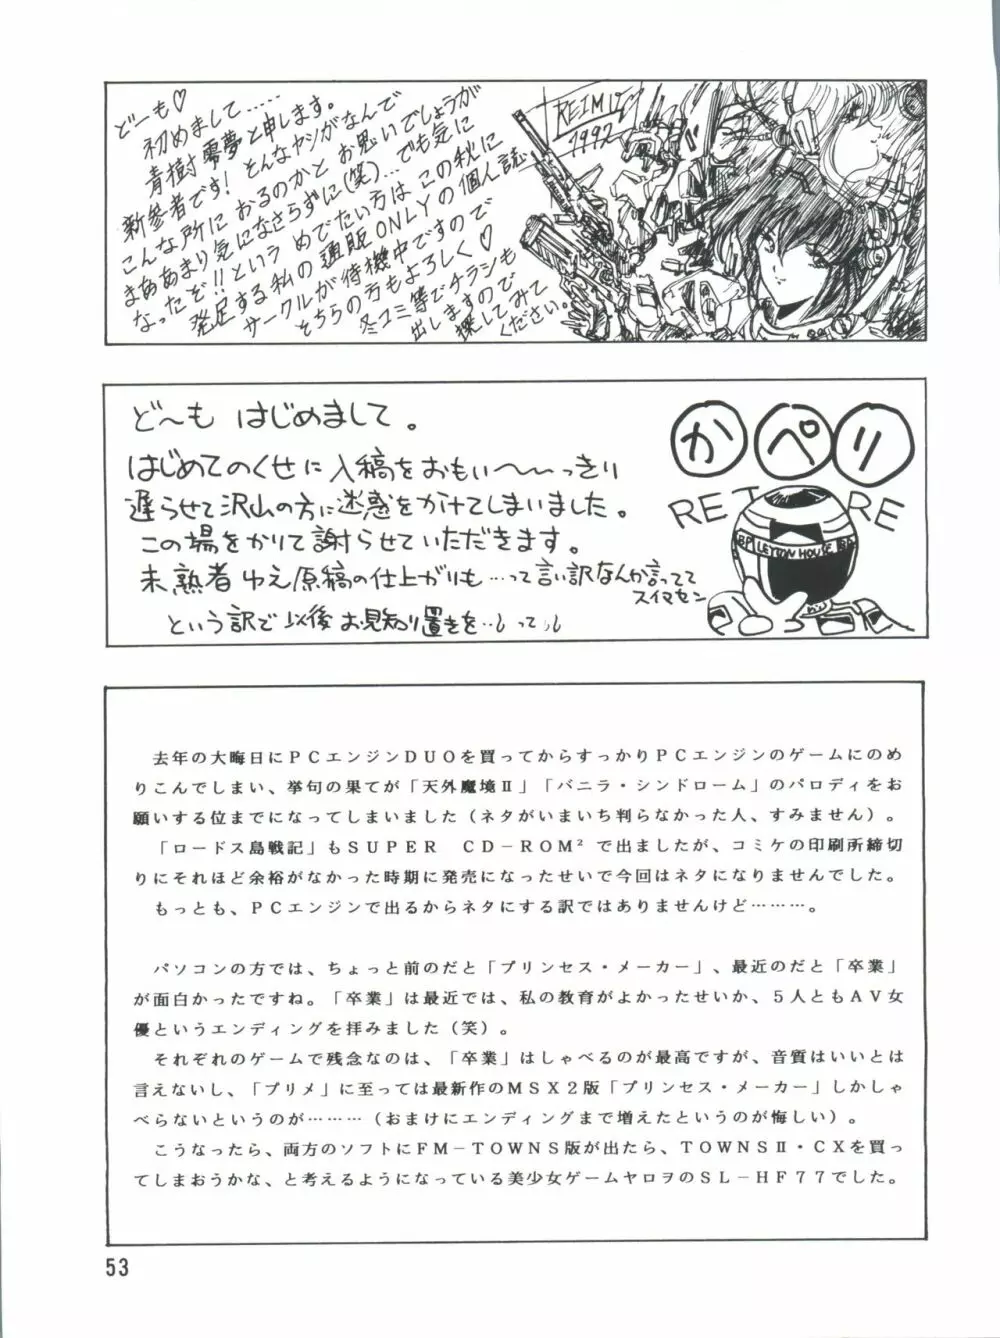 どーも♡
初めまして……
青樹零夢と申します。
新参者です! とんなヤツがなんで
こんな所におるのかとお思いでしょうが
まああまり気になさらずに(笑)…でも気に
なったぞ!!というめでたい方はこの秋に
発足する私の通販ONLYの個人誌
サークルが待機中ですので
そちらの方もよろしく♡
冬コミ等でチラシも
出しますので
探してみて
ください。
REIM
1992
ど〜も はじめまして。
はじめてのくせに入稿をおもい〜〜っきり
遅らせて沢山の方に迷惑をかけてしまいました。
この場をかりて謝らせていただきます。
未熟者ゆえ原稿の仕上がりも…って言い訳なんか言ってて
スイマセン
という訳で以後お見知り置きを…って
かペリ
RETIRE
BP LEYTON HOUSE BP
去年の大晦日にPCエンジンDUOを買ってからすっかりPCエンジンのゲームにのめ
りこんでしまい、挙句の果てが「天外魔境Ⅱ」「バニラ・シンドローム」のパロディをお
願いする位までになってしまいました(ネタがいまいち判らなかった人、すみません)。
「ロードス島戦記」もSUPER CD-ROM²で出ましたが、コミケの印刷所締切
りにそれほど余裕がなかった時期に発売になったせいで今回はネタになりませんでした。
もっとも、PCエンジンで出るからネタにする訳ではありませんけど………。
パソコンの方では、ちょっと前のだと「プリンセス・メーカー」、最近のだと「卒業」
が面白かったですね。「卒業」は最近では、私の教育がよかったせいか、5人ともAV女
優というエンディングを拝みました(笑)。
それぞれのゲームで残念なのは、「卒業」はしゃべるのが最高ですが、音質はいいとは
言えないし、「プリメ」に至っては最新作のMSX2版「プリンセス・メーカー」しかしゃ
べらないというのが………(おまけにエンディングまで増えたというのが悔しい)。
こうなったら、両方のソフトにFM-TOWNS版が出たら、TOWNSⅡ・CXを買っ
てしまおうかな、と考えるようになっている美少女ゲームヤロヲのSL-HF77でした。
53